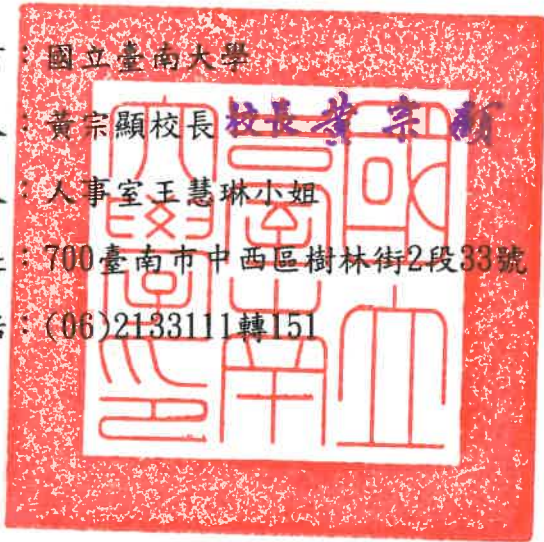 ：國立臺南大學
：黃宗顯校長 校長黃宗顯
：人事室王慧琳小姐
：700臺南市中西區樹林街2段33號
：(06)2133111轉151
國立臺南大學印